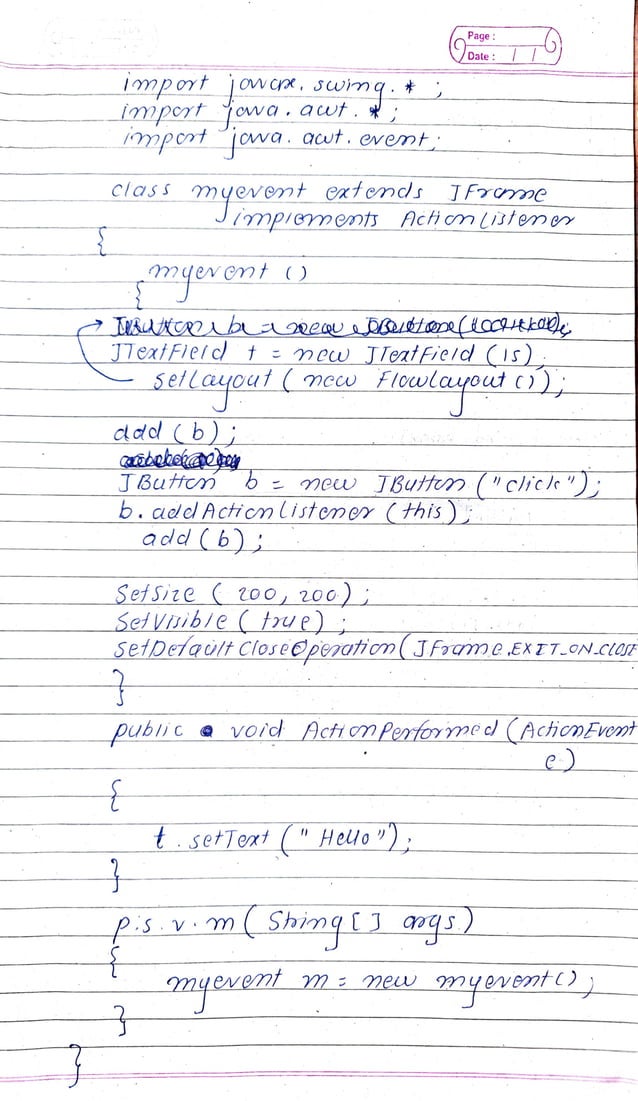 Page :
Date : / /
import javax. swing. * ;
import java. awt. * ;
import java. awt. event;
class myevent extends JFrame
implements ActionListener
{
myevent ()
{
JTextField t = new JTextField (15);
setLayout ( new FlowLayout ());
add (b) ;
JButton b = new JButton ("click");
b. addActionListener (this);
add (b) ;
SetSize ( 200, 200) ;
SetVisible ( true) ;
SetDefaultCloseOperation (JFrame.EXIT_ON_CLOSE
}
public void ActionPerformed (ActionEvent
e)
{
t . setText (" Hello");
}
p.s. v. m ( String [] args)
{
myevent m = new myevent();
}
}